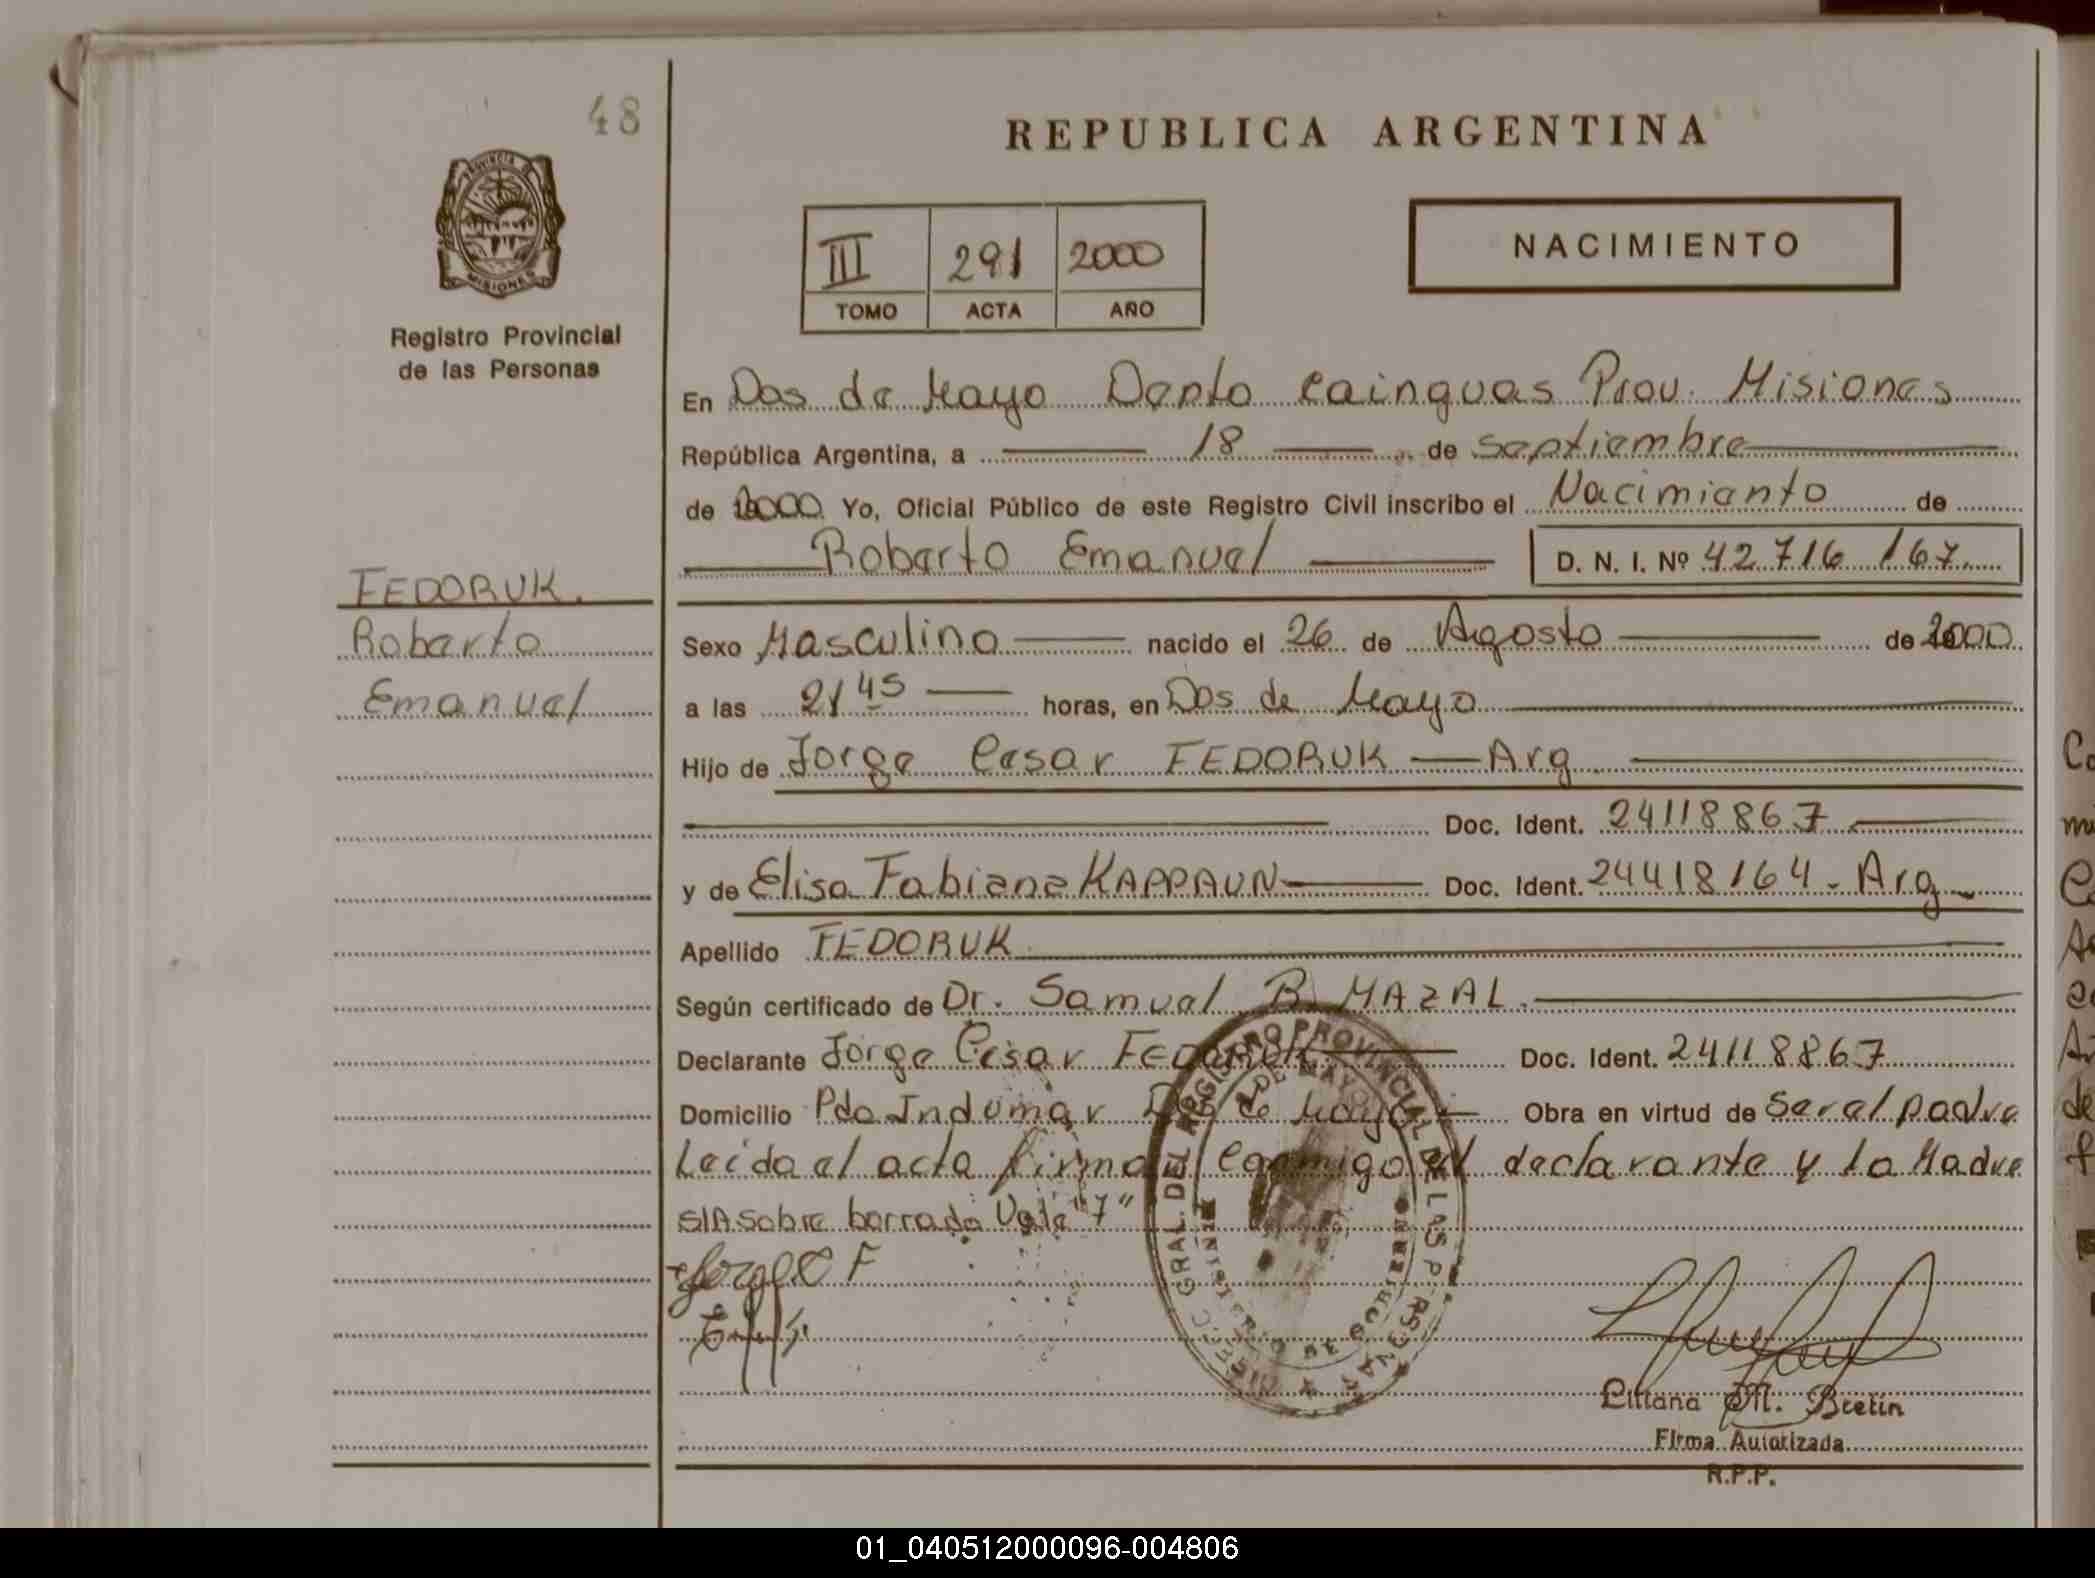 48
REPUBLICA ARGENTINA
PROVINCIA DE MISIONES
Registro Provincial
de las Personas
III 291 2000
TOMO ACTA AÑO
NACIMIENTO
En Dos de Mayo Depto Cainguas Prov. Misiones
República Argentina, a 18 de septiembre
de 2000 Yo, Oficial Público de este Registro Civil inscribo el Nacimiento de
Roberto Emanuel D. N. I. Nº 42.716.167
FEDORUK.
Roberto
Emanuel
Sexo Masculino nacido el 26 de Agosto de 2000
a las 21 45 horas, en Dos de Mayo
Hijo de Jorge Cesar FEDORUK — Arg
Doc. Ident. 24118867
y de Elisa Fabiana KAPPAUN Doc. Ident. 24418164 - Arg
Apellido FEDORUK
Según certificado de Dr. Samuel B. MAZAL.
Declarante Jorge Cesar FEDORUK Doc. Ident. 24118867
Domicilio Pdo Indumar Dos de Mayo Obra en virtud de Ser el padre
Leida el acta firma conmigo el declarante y la Madre
S/A sobre borrado Vale "7"
Jorge C F
DIRECC. GRAL. DEL REGISTRO PROVINCIAL DE LAS PERSONAS
2 DE MAYO
MINISTERIO DE GOBIERNO
Liliana M. Bretin
Firma Autorizada
R.P.P.
01_040512000096-004806